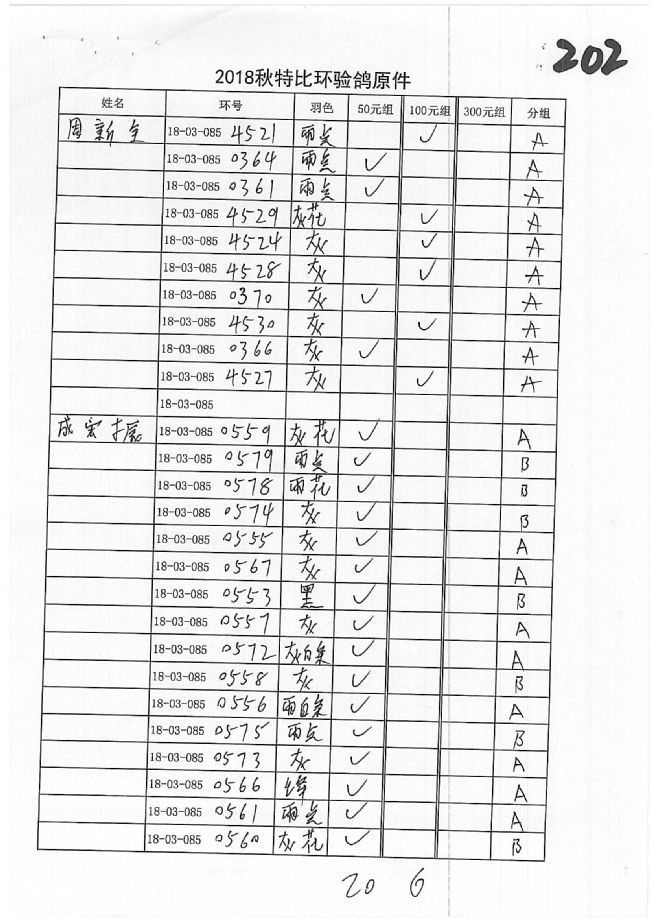 202
2018秋特比环验鸽原件
姓名 环号 羽色 50元组 100元组 300元组 分组
周新全 18-03-085 4521 雨点 ✓ A
18-03-085 0364 雨点 ✓ A
18-03-085 0361 雨点 ✓ A
18-03-085 4529 灰花 ✓ A
18-03-085 4524 灰 ✓ A
18-03-085 4528 灰 ✓ A
18-03-085 0370 灰 ✓ A
18-03-085 4530 灰 ✓ A
18-03-085 0366 灰 ✓ A
18-03-085 4527 灰 ✓ A
18-03-085
成宏振 18-03-085 0559 灰花 ✓ A
18-03-085 0579 雨点 ✓ B
18-03-085 0578 雨花 ✓ B
18-03-085 0574 灰 ✓ B
18-03-085 0555 灰 ✓ A
18-03-085 0567 灰 ✓ A
18-03-085 0553 黑 ✓ B
18-03-085 0557 灰 ✓ A
18-03-085 0572 灰白条 ✓ A
18-03-085 0558 灰 ✓ B
18-03-085 0556 雨白条 ✓ A
18-03-085 0575 雨点 ✓ B
18-03-085 0573 灰 ✓ A
18-03-085 0566 绛 ✓ A
18-03-085 0561 雨点 ✓ A
18-03-085 0560 灰花 ✓ B
20 6